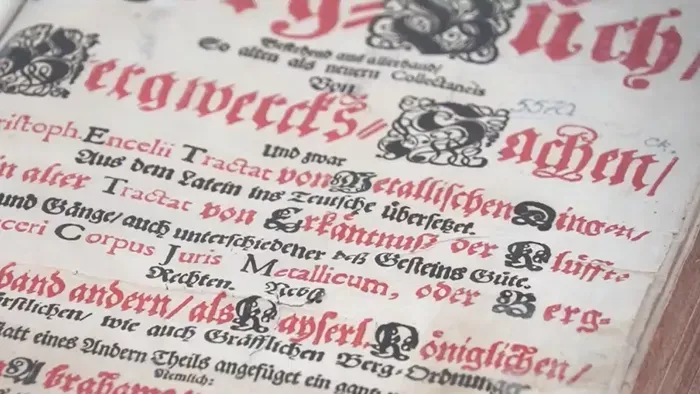 Berg-Buch/
Bestehend aus allerhand/
So alten als neuern Collectaneis
Von
Bergwercks-Sachen/
5572
ck.
Und zwar
ristoph. Encelii Tractat von Metallischen Dingen/
Aus dem Latein ins Teutsche übersetzet.
in alter Tractat von Erkäntnuß der Klüffte
und Gänge/ auch unterschiedener deß Gesteins Güte.
ceri Corpus Juris Metallicum, oder Berg-
Rechten. Nebst
band andern/ als Kayserl. Königlichen/
rstlichen/ wie auch Gräfflichen Berg-Ordnungen
statt eines Andern Theils angefüget ein gant
Nemlich:
Abraham